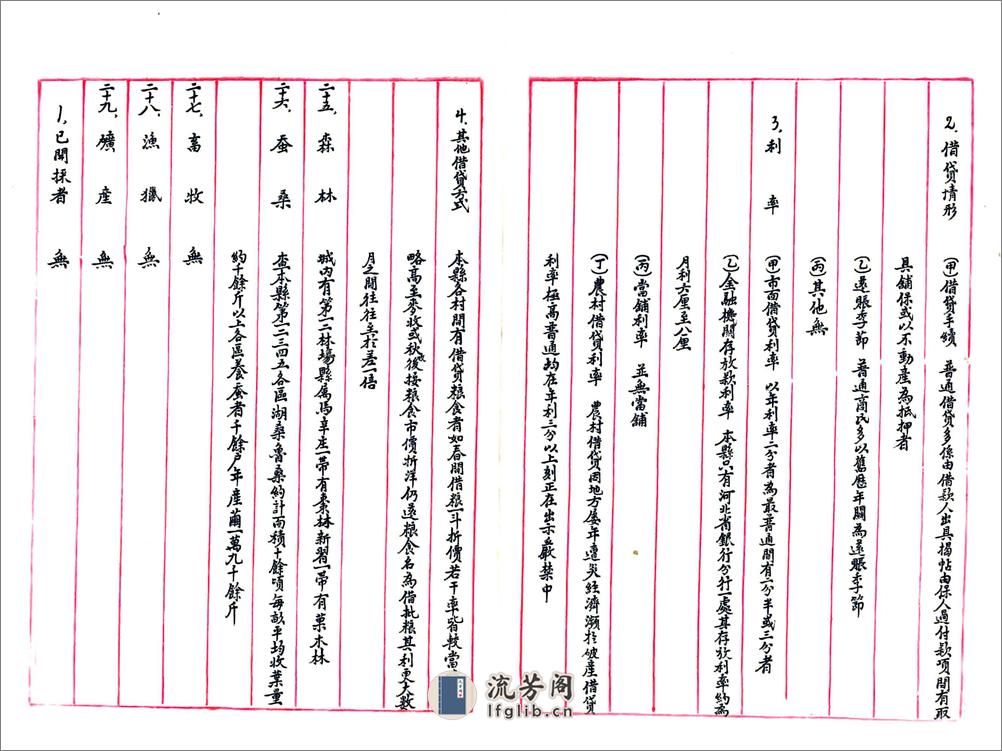 2. 借貸情形 (甲)借貸手續 普通借貸多係由借款人出具揭帖由保人過付款項間有取
具舖保或以不動產為抵押者
(乙)還賬季節 普通商民多以舊歷年關為還賬季節
(丙)其他無
3. 利率 (甲)市面借貸利率 以年利率二分者為最普通間有一分半或三分者
(乙)金融機關存放款利率 本縣只有河北省銀行分行一處其存放利率約為
月利六厘至八厘
(丙)當舖利率 並無當舖
(丁)農村借貸利率 農村借貸因地方屡年遭災經濟瀕於破產借貸
利率極高普通均在年利三分以上刻正在出示嚴禁中
4. 其他借貸方式 本縣各村間有借貸粮食者如春間借粮一斗折價若干率皆較當
略高至麥收或秋後按粮食市價折洋仍還粮食名為借批粮其利更大數
月之間往往至於差一倍
二十五、森林 城內有第一二林場縣属馬卓庄一帶有棗林新習一帶有菓木林
二十六、蚕桑 查本縣第一二三四五各區湖桑魯桑約計面積十餘頃每畝平均收葉量
約千餘斤以上各區養蚕者千餘户年産繭一萬九千餘斤
二十七、畜牧 無
二十八、漁獵 無
二十九、礦産 無
1. 已開採者 無
流芳阁
lfglib.cn